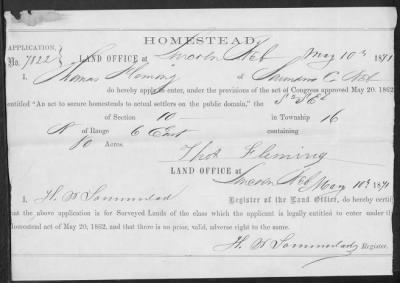 HOMESTEAD.
APPLICATION,
No. 7822 LAND OFFICE at Lincoln Neb May 10th 1871
I, Thomas Fleming of Saunders Co Neb
do hereby apply to enter, under the provisions of the act of Congress approved May 20, 1862,
entitled "An act to secure homesteads to actual settlers on the public domain," the S½ SE¼
of Section 10 in Township 16
N of Range 6 East containing
80 Acres.
Thos Fleming
LAND OFFICE at Lincoln Neb May 10th 1871
I, H. Register of the Land Office, do hereby certify
that the above application is for Surveyed Lands of the class which the applicant is legally entitled to enter under the
Homestead act of May 20, 1862, and that there is no prior, valid, adverse right to the same.
H. Register.